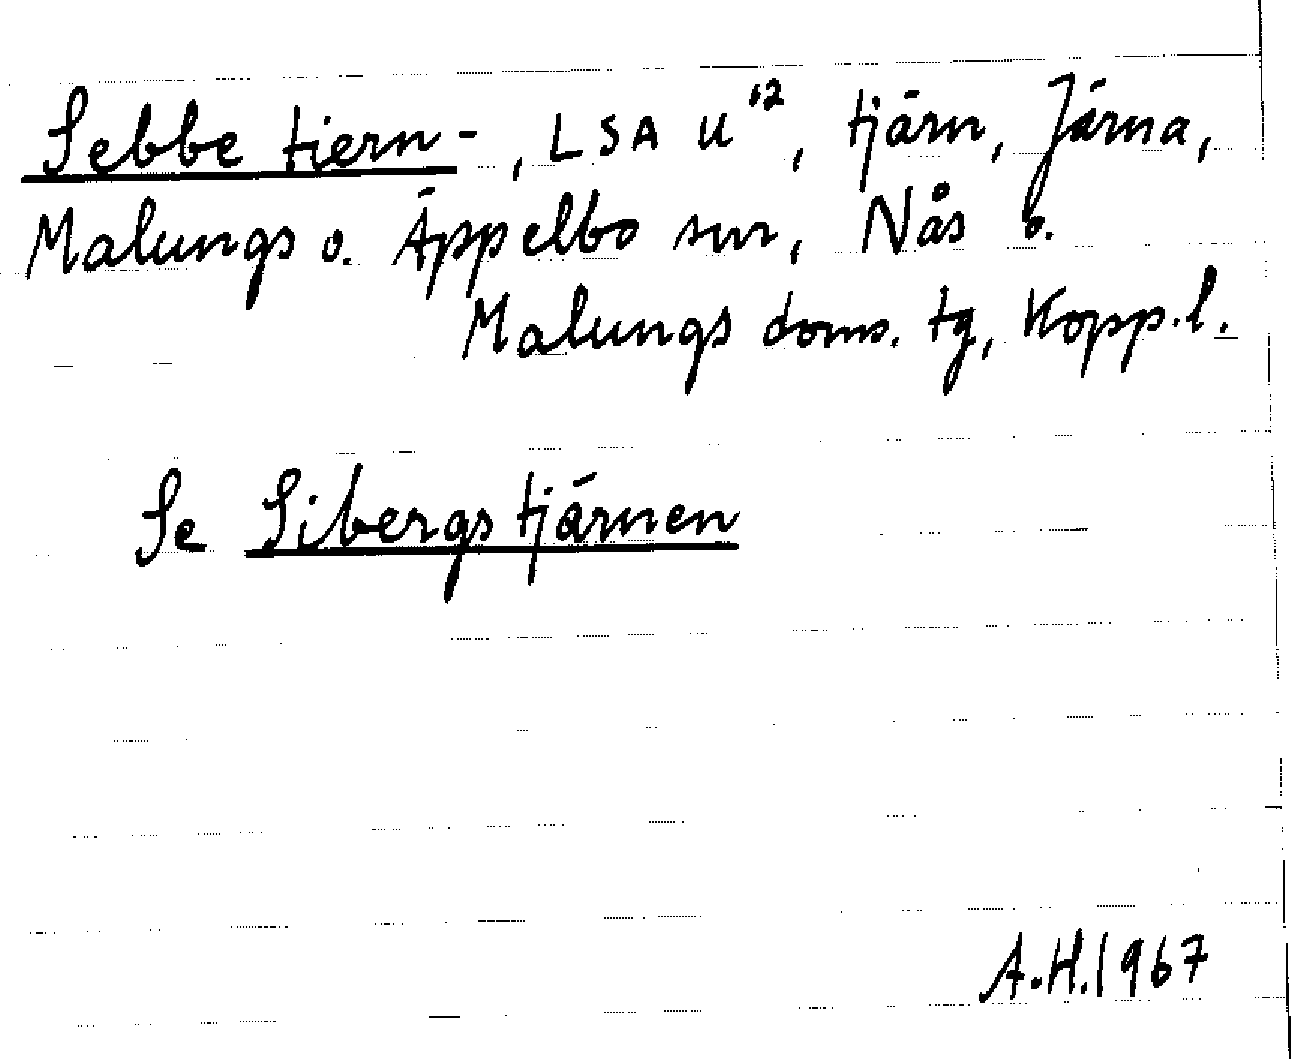 Sebbe tiern-, LSA U¹², tjärn, Järna,
Malungs o. Äppelbo snr, Nås o.
Malungs doms. tg, Kopp.l.
Se Sibergstjärnen
A.H. 1967